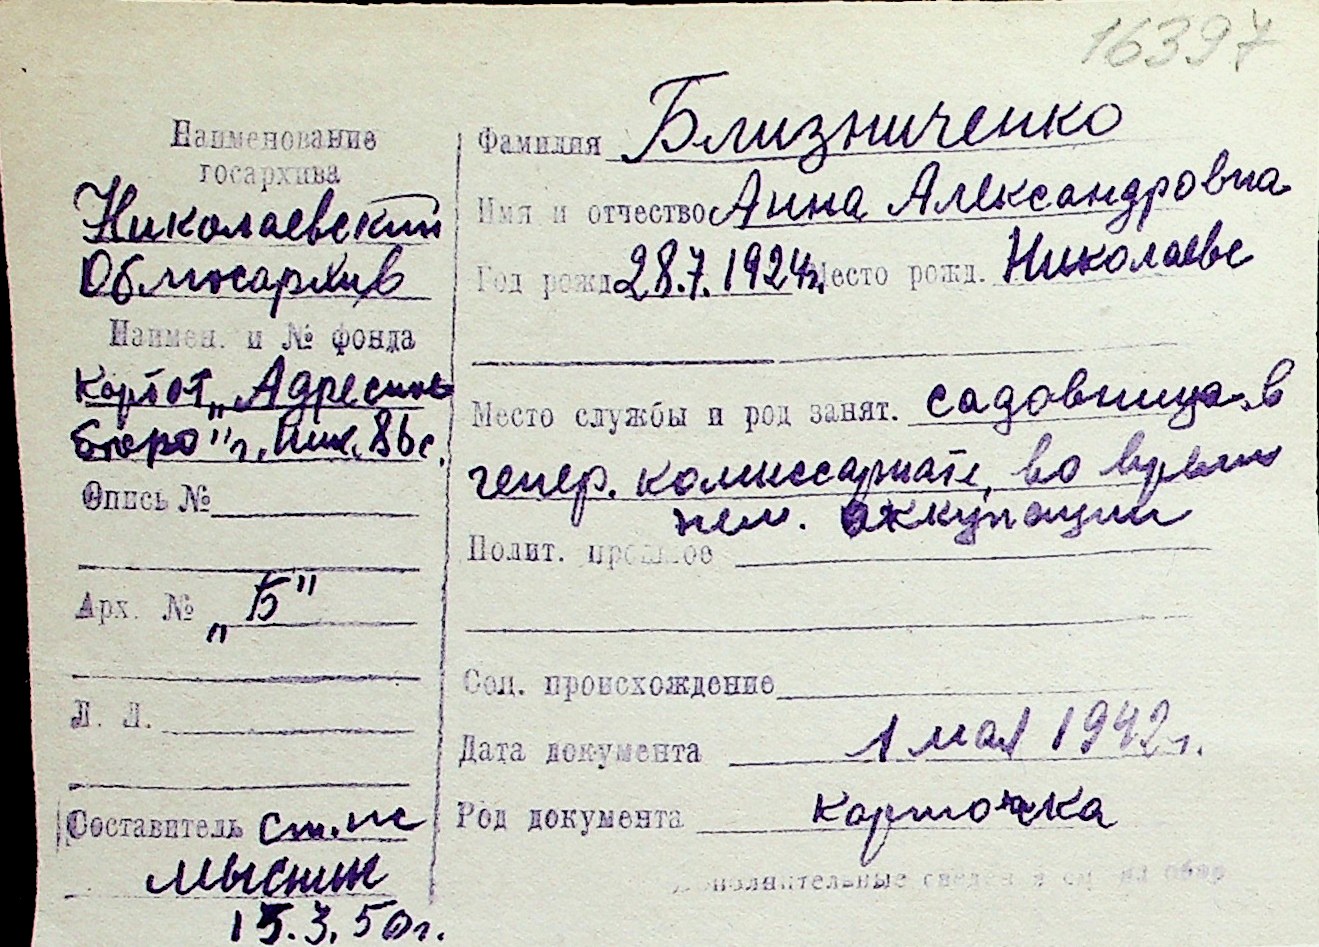 16397
Наименование
госархива
Николаевский
Облгосархив
Наимен. и № фонда
Картот. „Адресное
бюро" г. Ник.
Опись №
Арх. № „Б"
Л. Л.
Составитель ст. нс
Мыснин
15.3.50г.
Фамилия Близниченко
Имя и отчество Анна Александровна
Год рожд. 28.7.1924г. Место рожд. Николаеве
Место службы и род занят. садовница в
генер. комиссариате, во время
нем. оккупации
Полит. прошлое
Соц. происхождение
Дата документа 1 мая 1942г.
Род документа карточка
Дополнительные сведения см. на обор